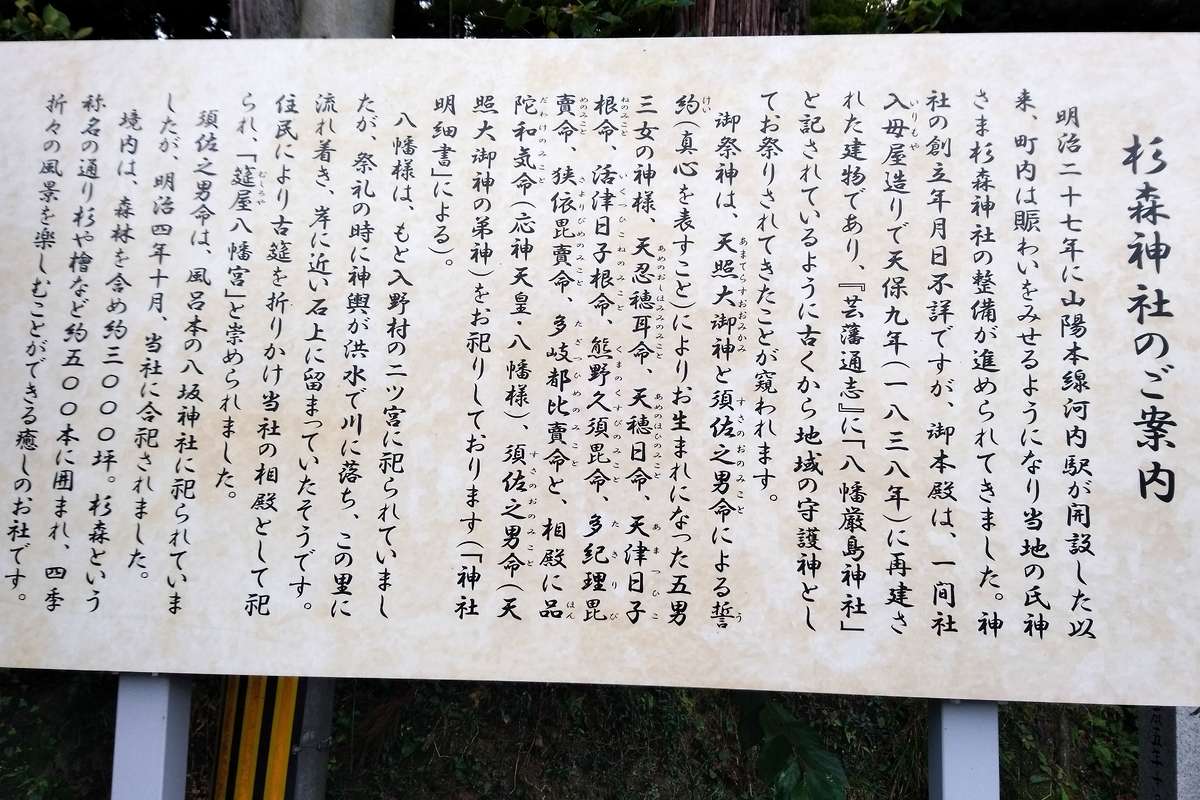 杉森神社のご案内
明治二十七年に山陽本線河内駅が開設した以
来、町内は賑わいをみせるようになり当地の氏神
さま杉森神社の整備が進められてきました。神
社の創立年月日不詳ですが、御本殿は、一間社
入母屋造りで天保九年(一八三八年)に再建さ
れた建物であり、『芸藩通志』に「八幡厳島神社」
と記されているように古くから地域の守護神とし
てお祭りされてきたことが窺われます。
御祭神は、天照大御神と須佐之男命による誓
約(真心を表すこと)によりお生まれになった五男
三女の神様、天忍穂耳命、天穂日命、天津日子
根命、活津日子根命、熊野久須毘命、多紀理毘
賣命、狭依毘賣命、多岐都比賣命と、相殿に品
陀和気命(応神天皇・八幡様)、須佐之男命(天
照大御神の弟神)をお祀りしております(「神社
明細書」による)。
八幡様は、もと入野村の二ツ宮に祀られていまし
たが、祭礼の時に神輿が洪水で川に落ち、この里に
流れ着き、岸に近い石上に留まっていたそうです。
住民により古筵を折りかけ当社の相殿として祀
られ、「筵屋八幡宮」と崇められました。
須佐之男命は、風呂本の八坂神社に祀られていま
したが、明治四年十月、当社に合祀されました。
境内は、森林を含め約三〇〇〇坪。杉森という
称名の通り杉や檜など約五〇〇本に囲まれ、四季
折々の風景を楽しむことができる癒しのお社です。